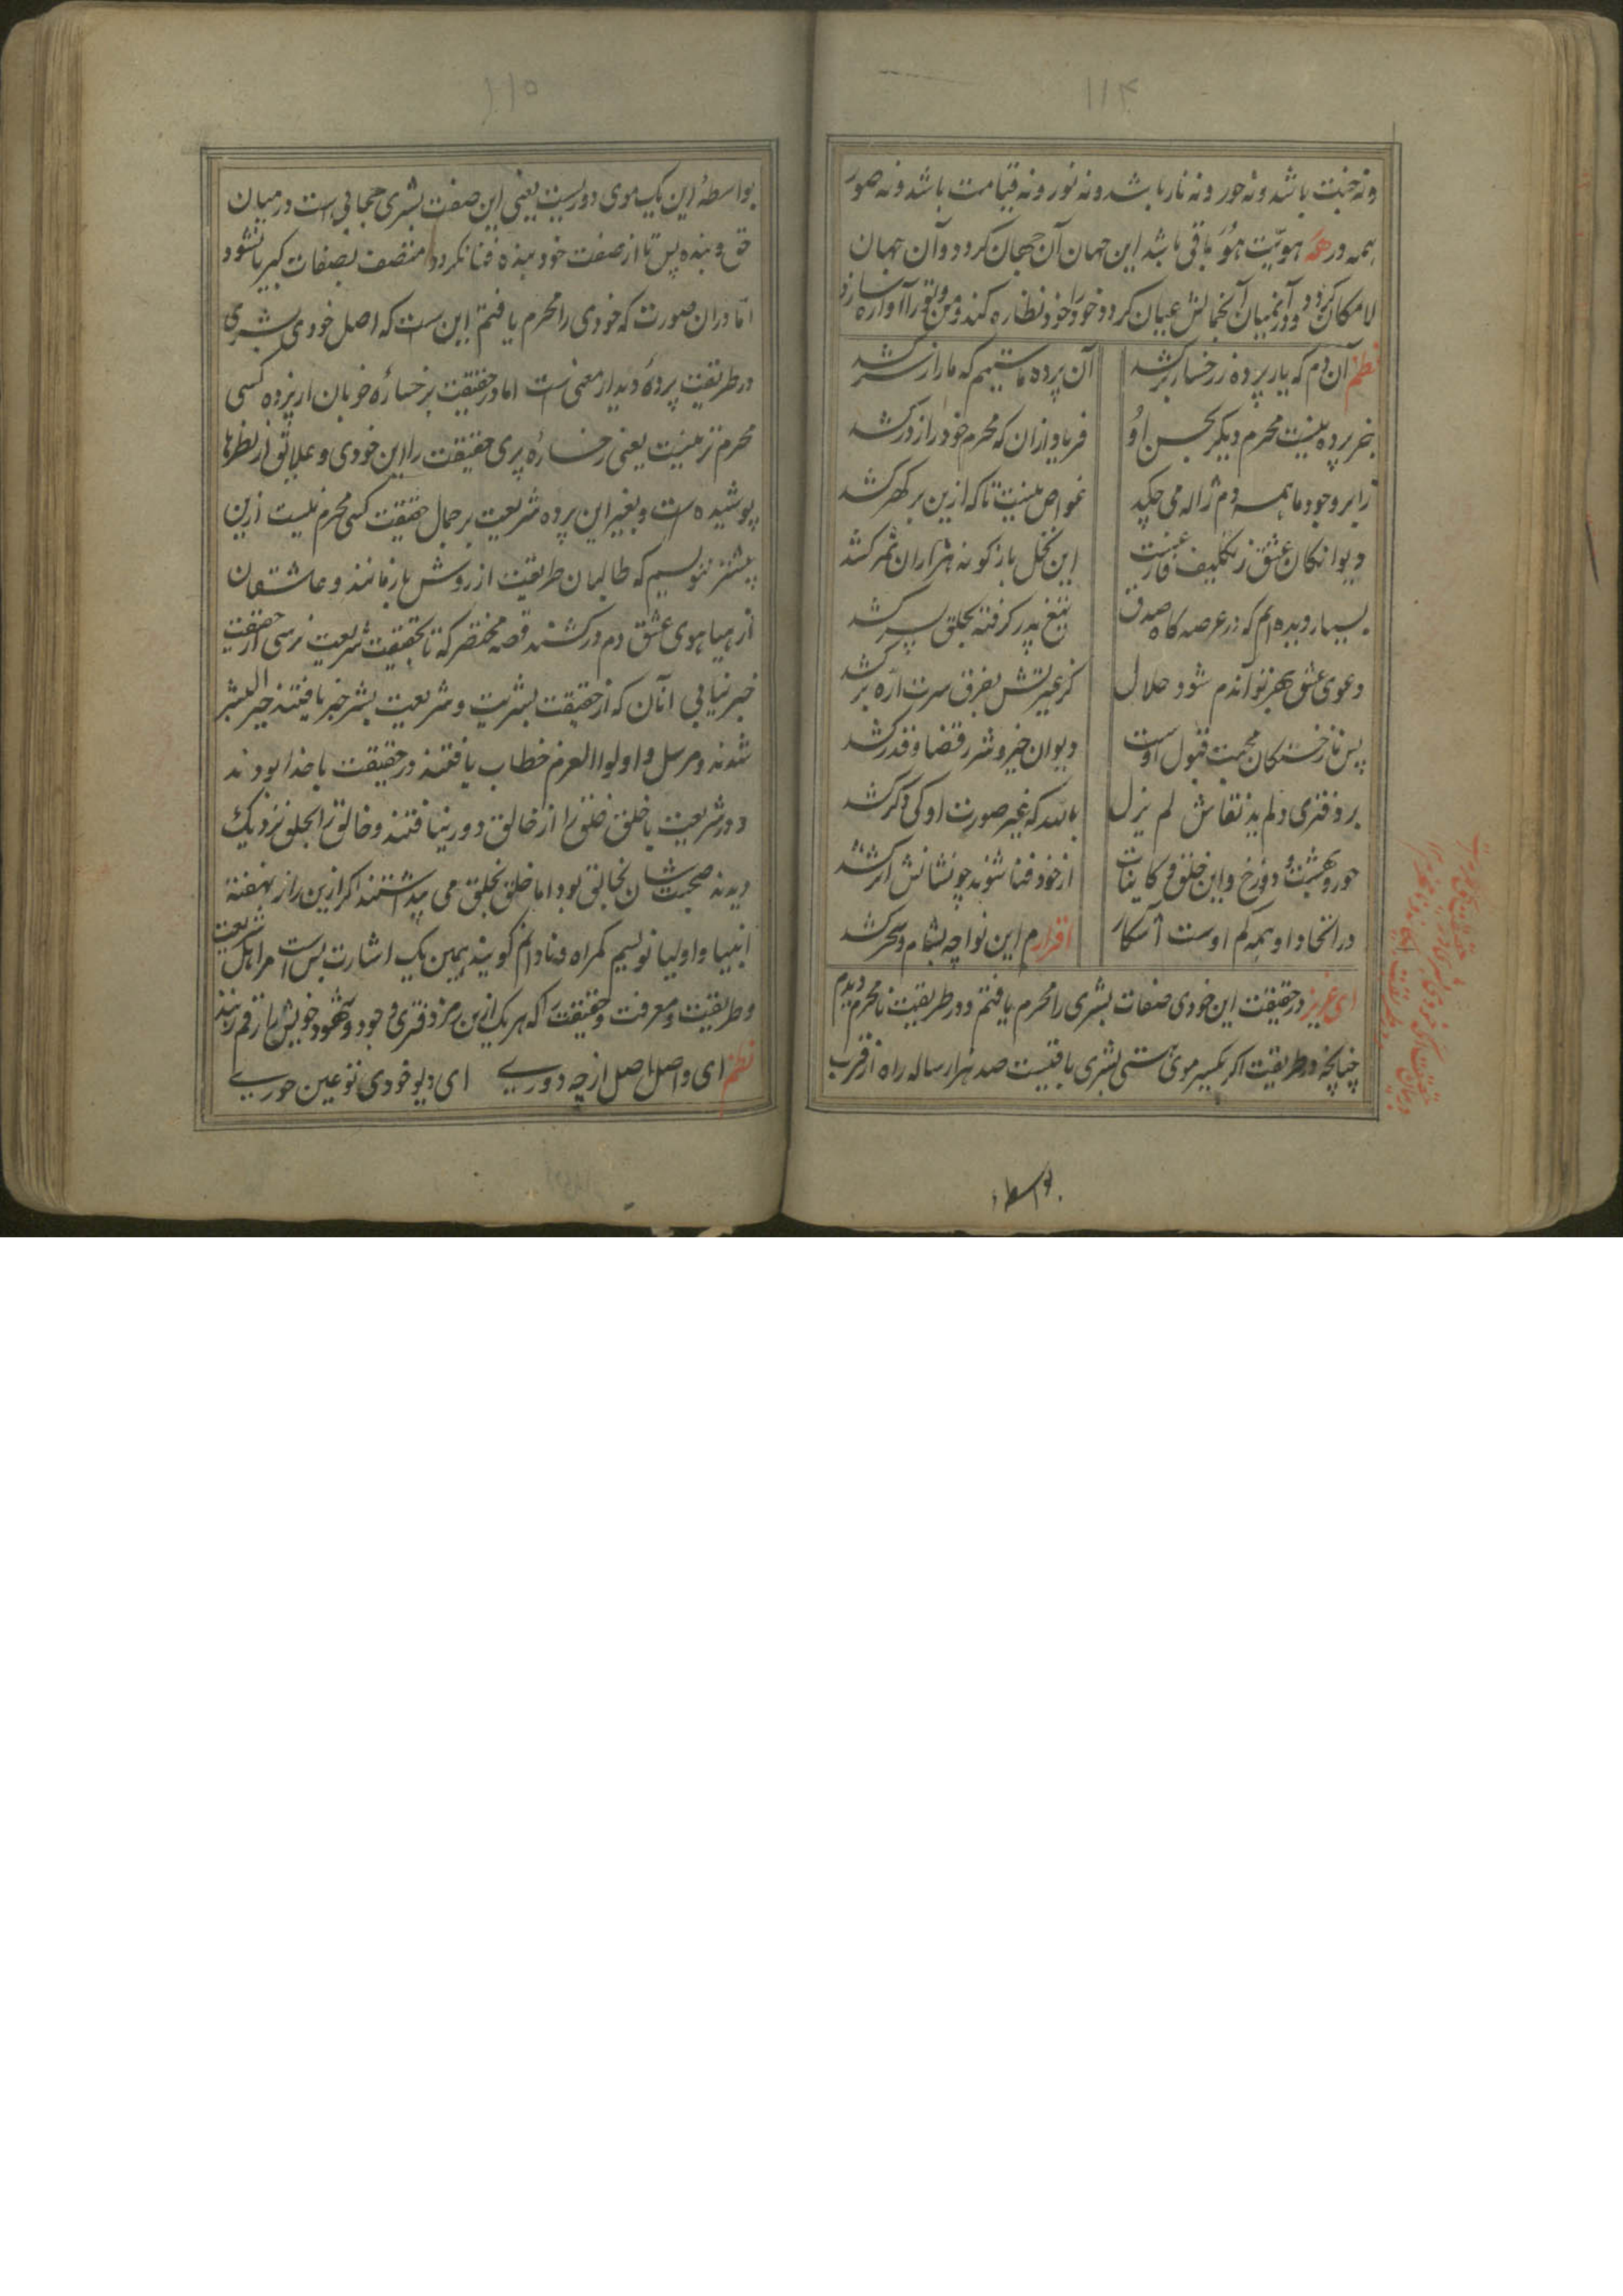 ۱۱۴
ونه جنت باشد ونه حور ونه نار باشد ونه نور ونه قیامت باشد ونه صور
همه در هو هویّت هُوَ باقی باشد این جهان آن جهان کردد وآن جهان
لامکان کردد ودر آنمیان آنجمالش عیان کردد خود را خود نظاره کند ومن وتو را آواره سازد
نظم آن دم که یار پرده ز رخسار برکشد
آن پرده ماستیم که ما را ز سر کشد
جز پرده نیست محرم دیکر بحسن اوُ
فریاد ازان که محرم خود را ز در کشد
زابر وجود ما همه دم ژاله می چکد
غواص نیست تا که ازین بر کهر کشد
دیوانکان عشق ز تکلیف فارغست
این نخل باز کو نه هزاران ثمر کشد
بسیار دیده ام که در عرصه کاه صدق
تیغ پدر کرفته بحلق پسر کشد
دعوی عشق بهر تو آندم شود حلال
کز غیرتش بفرق سرت ارّه بر کشد
پس نازخستکان محبت قبول اوست
دیوان خیر وشر ز قضا وقدر کشد
بر دفتر دلم ید نقاش لم یزل
بالله که غیر صورت او کی دکر کشد
حور وبهشت ودوزخ واین خلق وکاینات
از خود فنا شوند چو نشانش اثر کشد
در اتحاد او همه کم اوست آشکار
اقرارم این نوا چه بشام وسحر کشد
ای عزیز در حقیقت این خودی صفات بشری را محرم یافتم ودر طریقت نامحرم دیدم
چنانچه در طریقت اکر یکسر موی هستی بشری باقیست صد هزار ساله راه از قرب
بواسطه
۱۱۵
بواسطهٔ این یک موی دوریست یعنی این صفت بشری حجابی است در میان
حق وبنده پس تا از صفت خود بنده فنا نکردد متصف بصفات کبریا نشود
امّا دران صورت که خودی را محرم یافتم این ست که اصل خودی بشری
در طریقت پردهٔ دیدار معنی است اما در حقیقت بر خسارهٔ خوبان از پرده کسی
محرم تر نیست یعنی رخسارهٔ پری حقیقت را این خودی وعلائق از نظرها
پوشیده است وبغیر این پرده شریعت بر جمال حقیقت کسی محرم نیست ازین
پیشتر ننویسم که طالبان طریقت از روش باز مانند وعاشقان
از هیاهوی عشق دم در کشند قصه مختصر که تا بحقیقت شریعت نرسی از حقیقت
خبر نیابی آنان که از حقیقت بشریت وشریعت بشر خبر یافتند خیر البشر
شدند ومرسل واولوا العزم خطاب یافتند در حقیقت با خدا بودند
ودر شریعت با خلق خلق را از خالق دور نیافتند وخالق را بخلق نزدیک
دیدند صحبت شان بخالق بود اما خلق بخلق می پنداشتند اکر ازین راز نهفتهٔ
انبیا واولیا نویسم کمراه ونادانم کویند همین یک اشارت بس است مر اهل شریعت
وطریقت ومعرفت وحقیقت را که هر یک ازین رمز دفتری وجود وشهود خویش را رقم زنند
نظم ای واصل اصل از چه دوری ای دیو خودی تو عین حوری